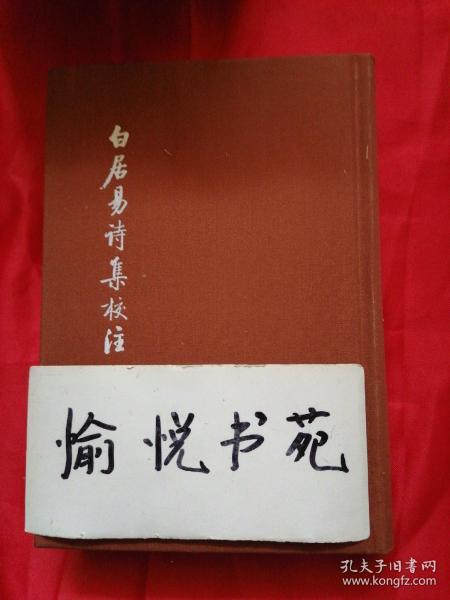 白居易诗集校注
愉悦书苑
孔夫子旧书网
www.kongfz.com